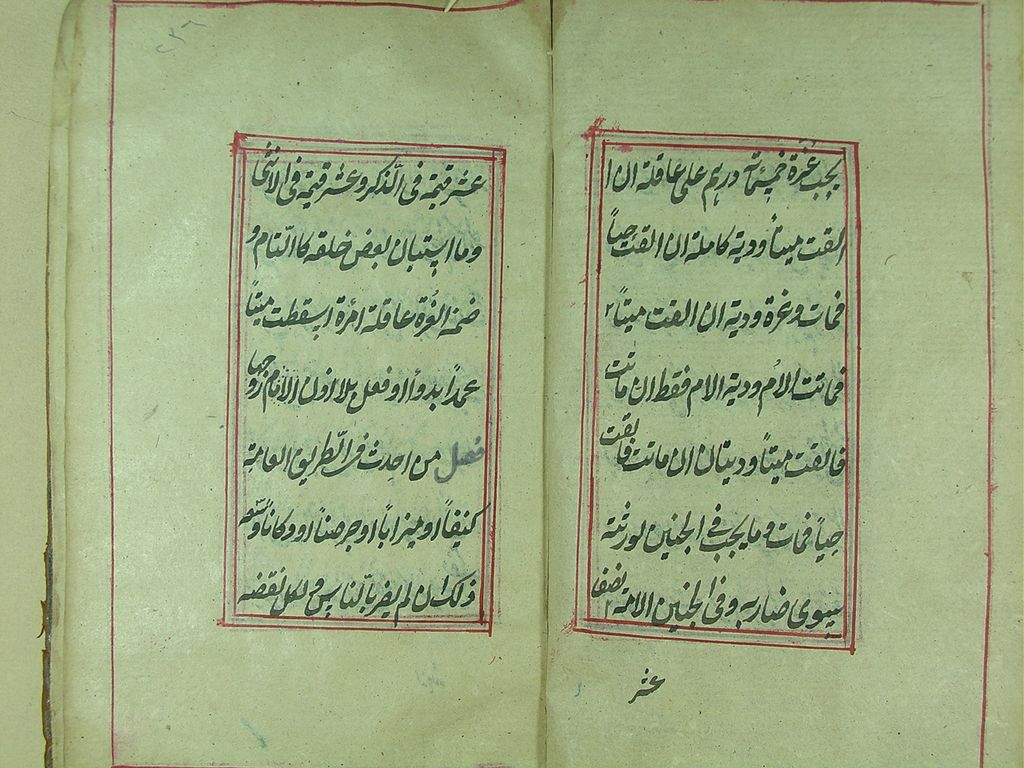 يجب غرة خمسمائة درهم على عاقلة ان ا
القت ميتاً ودية كاملة ان القت حياً
فمات وغرة ودية ان القت ميتاً
فماتت الاُم ودية الام فقط ان ماتت
فالقت ميتاً وديتان ان ماتت فالقت
حياً فمات وما يجب فى الجنين لورثته
سوى ضاربه وفى الجنين الامة نصف
عشر
عشر قيمته فى الذكر وعشر قيمته فى الانثى
وما استبان بعض خلقه كالتام و
ضمن الغُرة عاقلة امرٔة اسقطت ميتاً
عمداً بدواء او فعل بلا اذن زوجها
فصل من احدث فى الطريق العامة
كنيفاً او ميزاباً او جرصناً او دكاناً وسعه
ذلك ان لم يضر بالناس ولكل نقضه
٢٣٦